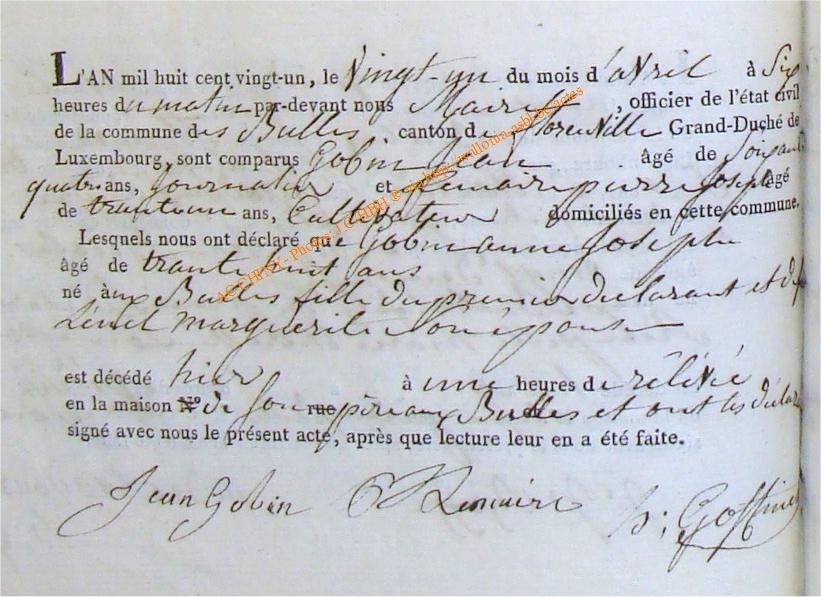 L'AN mil huit cent vingt-un, le Vingt-un du mois d'avril à Six
heures du matin par-devant nous Maire , officier de l'état civil
de la commune des Bulles canton de florenville Grand-Duché de
Luxembourg, sont comparus Gobin Jean âgé de Soixante
quatre ans, Journalier et Lemaire pierre Joseph âgé
de trante un ans, Cultivateur domiciliés en cette commune.
Lesquels nous ont déclaré que Gobin anne Joseph
âgé de trante huit ans
né aux Bulles fille du premier déclarant et de
marguerite Son épouse
est décédé hier à une heures de rélévé
en la maison N.º de Son rue père aux Bulles et ont les déclara
signé avec nous le présent acte, après que lecture leur en a été faite.
Jean Gobin Lemaire Goffinet
ACCHRNX - Photos: J C HBH © cig.hebp://walloma-asbl.be/actes